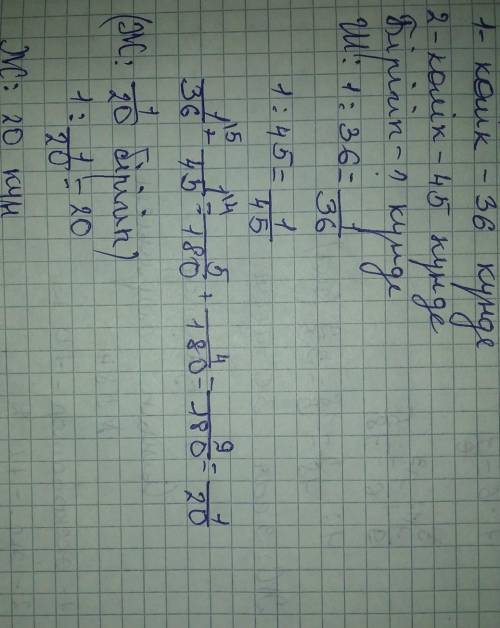 1 - көлік - 36 күнде
2 - көлік - 45 күнде
Бірігіп - ? күнде
Ш: 1 : 36 = 1/36
1 : 45 = 1/45
1/36 ⁵ + 1/45 ⁴ = 5/180 + 4/180 = 9/180 = 1/20
(Ж: 1/20 бөлігін)
1 : 1/20 = 20
Ж: 20 күн